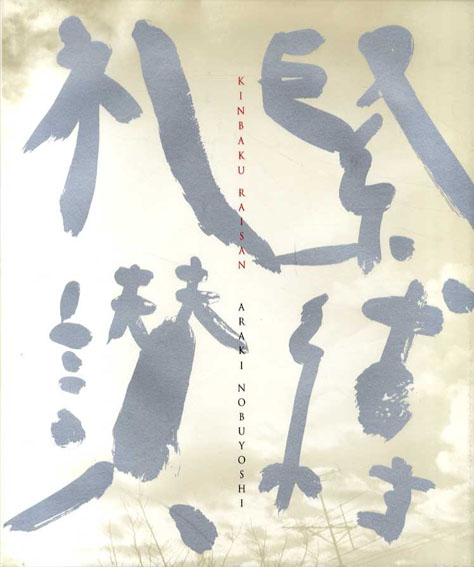 緊縛
礼讃
KINBAKU RAISAN ARAKI NOBUYOSHI